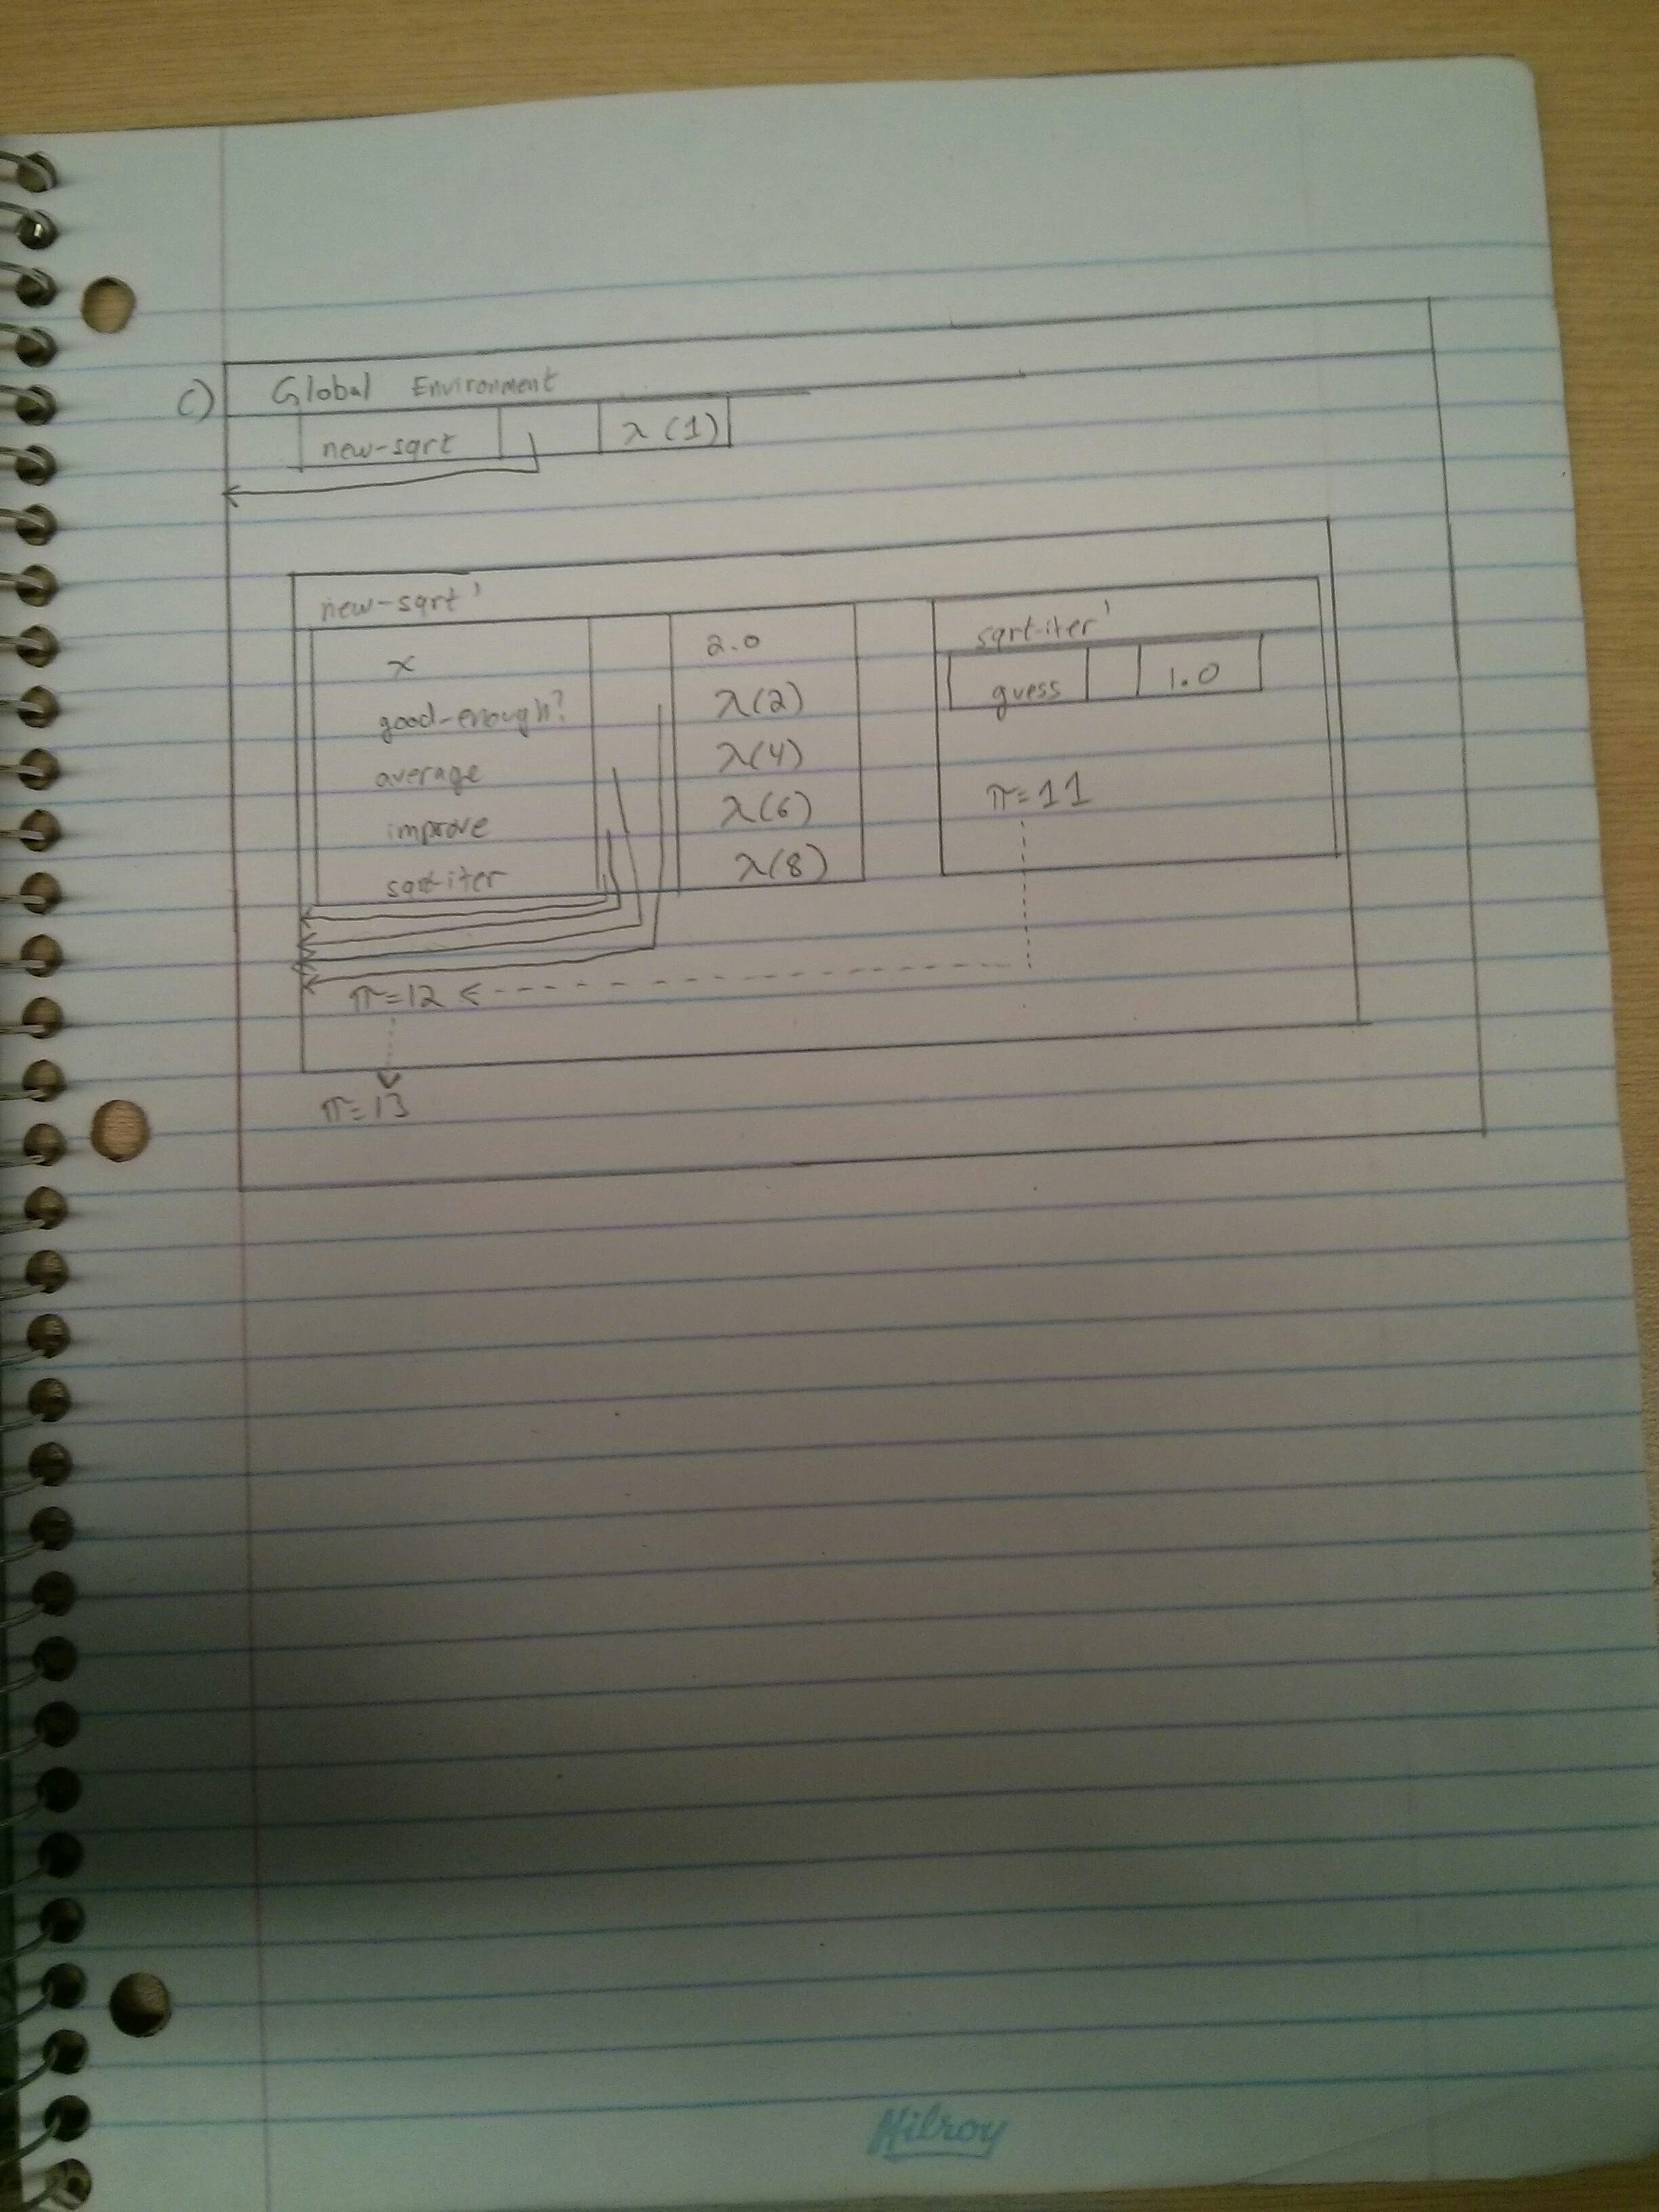 c) Global Environment
new-sqrt λ(1)
new-sqrt'
x 2.0
good-enough? λ(2)
average λ(4)
improve λ(6)
sqrt-iter λ(8)
sqrt-iter'
guess 1.0
π=11
π=12
π=13
Hilroy